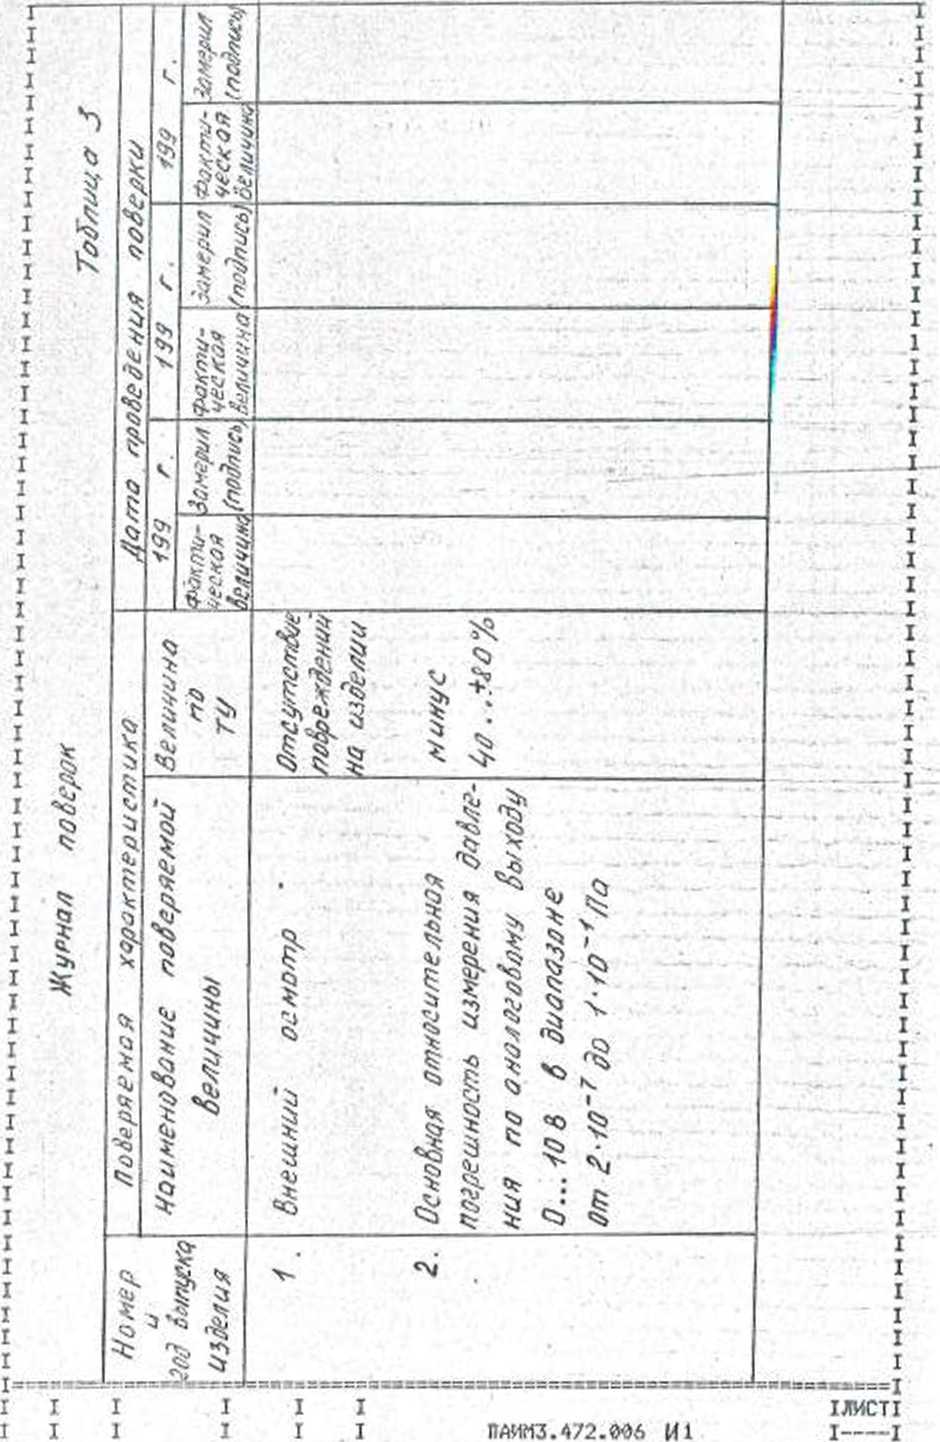 Таблица 3
Журнал поверок
Номер
и
год выпуска
изделия
Поверяемая характеристика
Наименование поверяемой
величины
Величина
по
ТУ
Дата проведения поверки
199 г.
199 г.
199 г.
Факти-
ческая
величина
Замерил
(подпись)
Факти-
ческая
величина
Замерил
(подпись)
Факти-
ческая
величина
Замерил
(подпись
1.
Внешний осмотр.
Отсутствие
повреждений
на изделии
2.
Основная относительная
погрешность измерения давле-
ния по аналоговому выходу
0...10 В в диапазоне
от 2·10⁻⁷ до 1·10⁻¹ Па
минус
40...+80%
ПАИМ3.472.006 И1
ЛИСТ